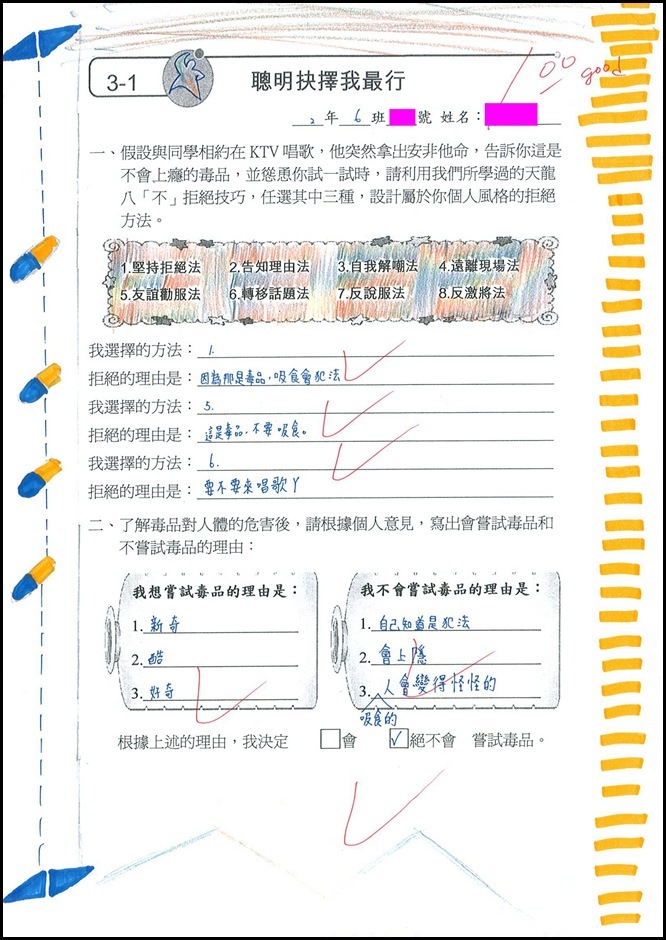 100
good
3-1
聰明抉擇我最行
2 年 6 班 號 姓名：
一、假設與同學相約在 KTV 唱歌，他突然拿出安非他命，告訴你這是
不會上癮的毒品，並慫恿你試一試時，請利用我們所學過的天龍
八「不」拒絕技巧，任選其中三種，設計屬於你個人風格的拒絕
方法。
1.堅持拒絕法 2.告知理由法 3.自我解嘲法 4.遠離現場法
5.友誼勸服法 6.轉移話題法 7.反說服法 8.反激將法
我選擇的方法：1.
拒絕的理由是：因為那是毒品，吸食會犯法
我選擇的方法：5.
拒絕的理由是：這是毒品，不要吸食。
我選擇的方法：6.
拒絕的理由是：要不要來唱歌ㄚ
二、了解毒品對人體的危害後，請根據個人意見，寫出會嘗試毒品和
不嘗試毒品的理由：
我想嘗試毒品的理由是：
1. 新奇
2. 酷
3. 好奇
我不會嘗試毒品的理由是：
1. 自己知道是犯法
2. 會上隱
3. 人會變得怪怪的
吸食的
根據上述的理由，我決定 □會 ☑絕不會 嘗試毒品。